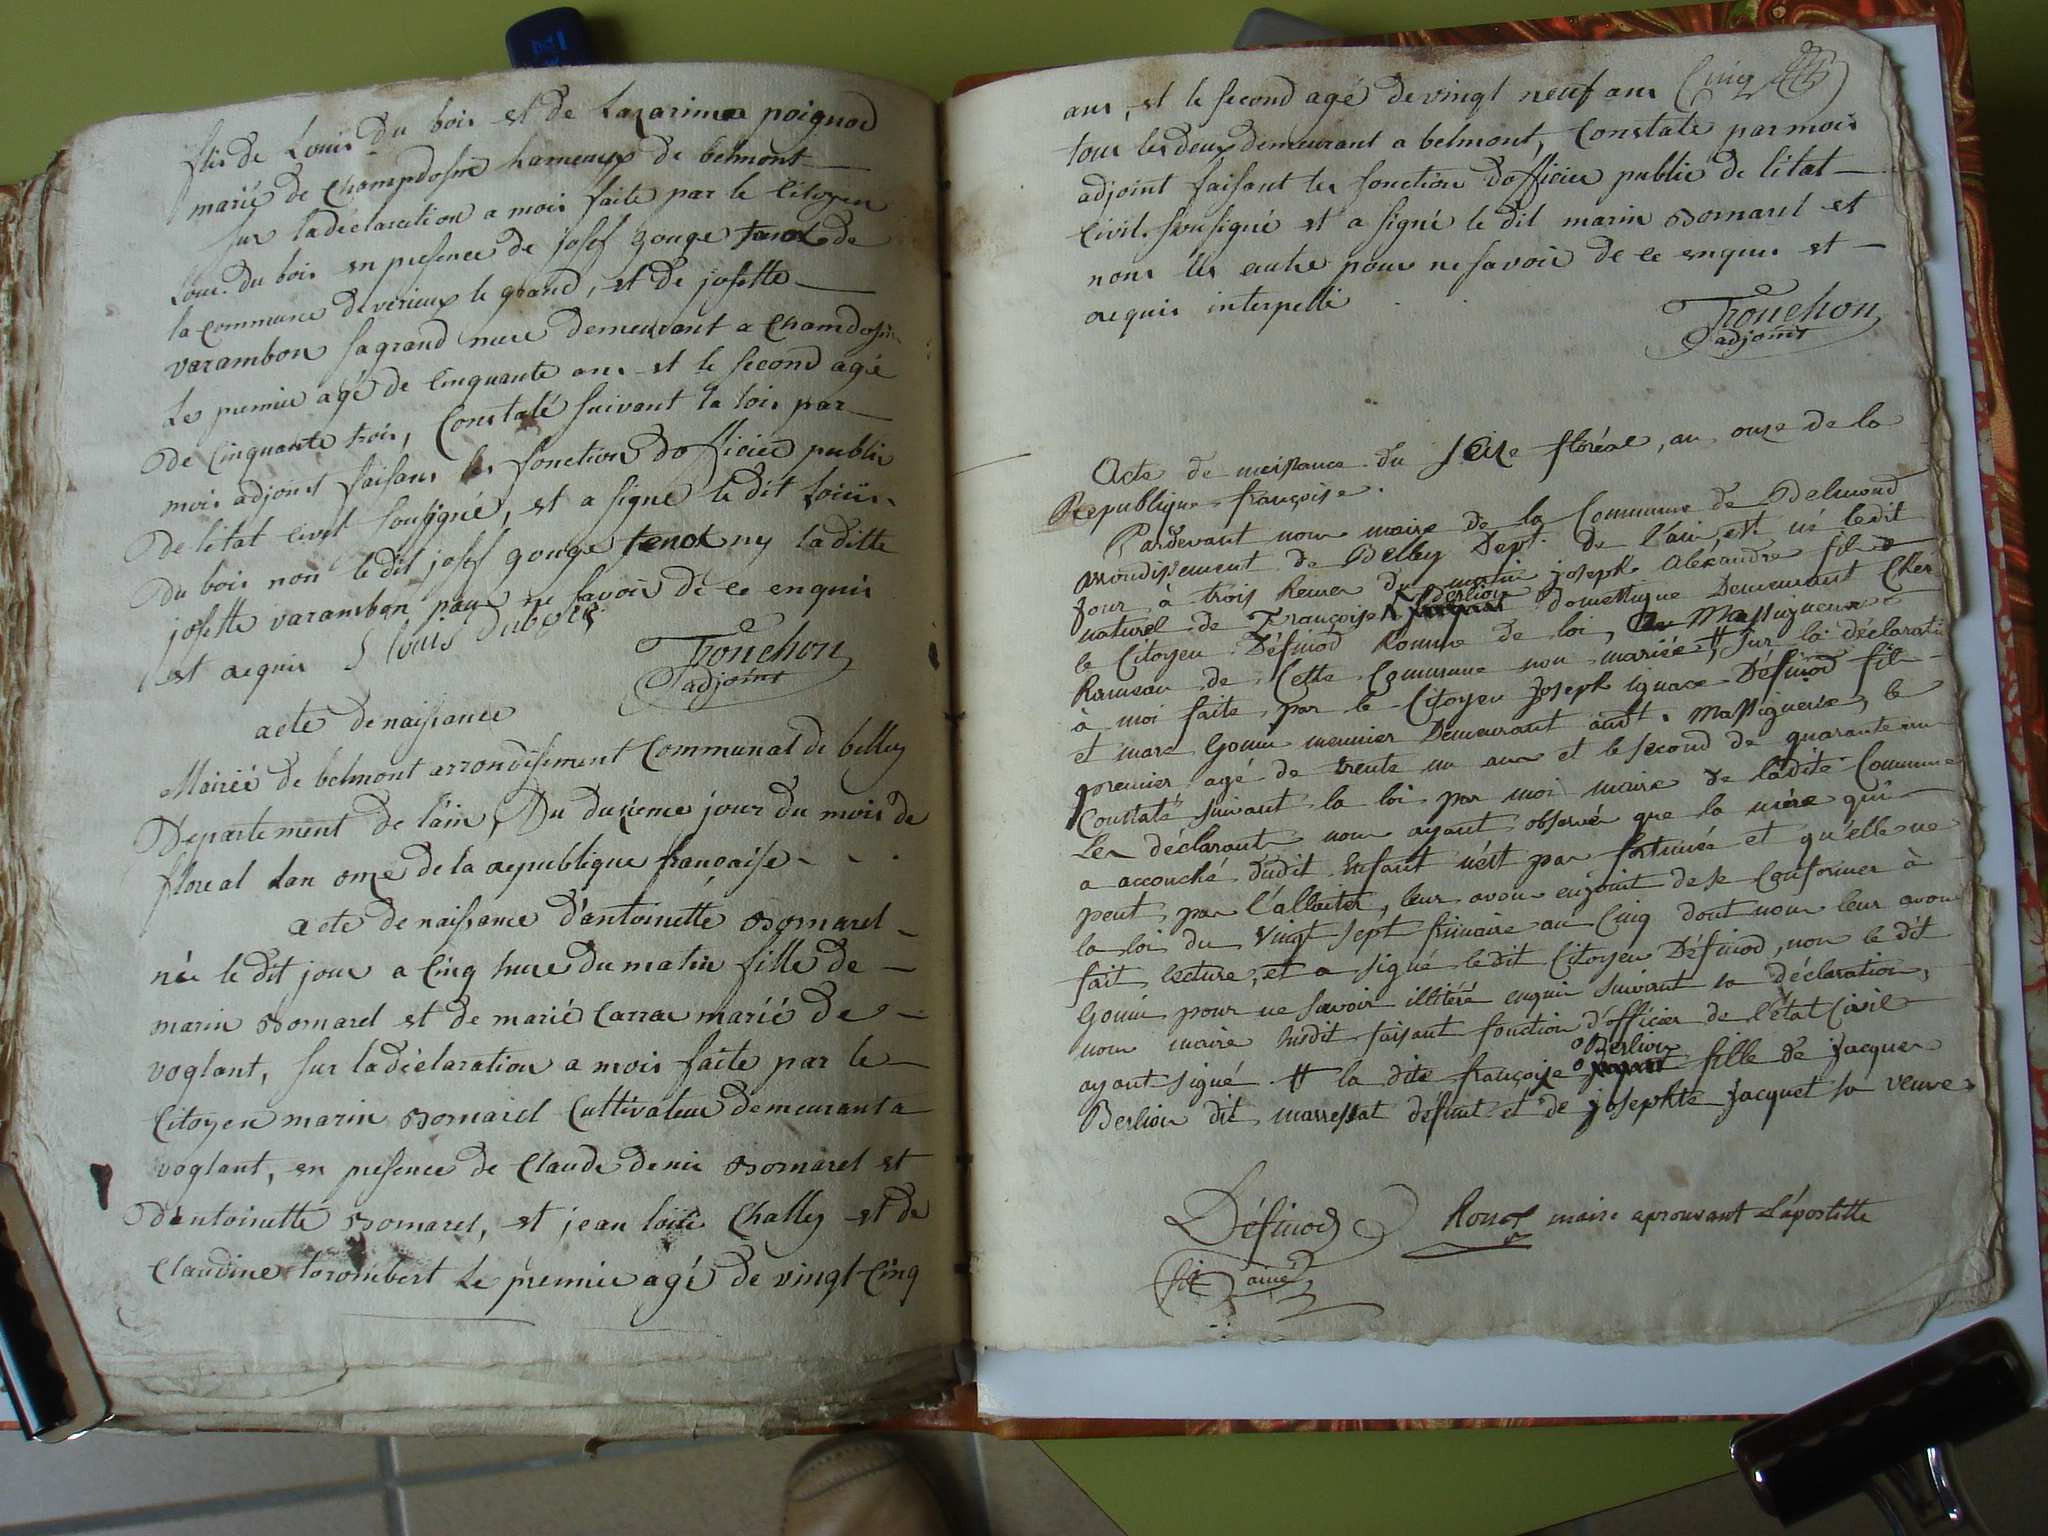 fils de Louis du bois et de Lazarinne poignod
marié de Champdosin hameaux de belmont
sur la déclaration a mois faite par le Citoyen
Loui du bois en presence de josef gouge tenot de
la commune de virieux le grand, et de josette
varambon sa grand mere demeurant a Chamdosin
Le premie agé de Cinquante ans et le second agé
de Cinquante trois, Constaté suivant la lois par
mois adjoint faisans les fonction d'officier public
de l'état civil sousigné, et a signe le dit Loiis
du bois non le dit josef gouge tenot ny la ditte
josette varambon pour ne savoir de ce enquis
et requis
Louis Dubois
Tronchon
adjoint
acte de naissance
Mairié de belmont arrondissement Communal de belley
Departement de l'ain, Du duxieme jour du mois de
floreal l'an onze de la republique francaise
acte de naissance d'antoinette Bomarel
née le dit jour a Cinq hure du matin fille de
marin Bomarel et de marié Carrae marié de
voglant, sur la déclaration a mois faite par le
Citoyen marin Bomarel Cultivateur demeurant a
voglant, en presence de Claude denis Bomarel et
d'antoinette Bomarel, et jean loiis Challey et de
Claudine torombert Le premie agé de vingt Cinq
Cinq
ans, et le second agé de vingt neuf ans
tous les deux demeurant a belmont, Constaté par mois
adjoint faisant les fonction d'officier public de l'état
civil. sousigné et a signé le dit marin Bomarel et
nons les autre pour ne savoir de ce enquis et
requis interpellé
Tronchon
adjoint
Acte de naissance du Seize floréal, an onze de la
Republique françoise.
Pardevant nous maire de la Commune de Belmond
arrondissement de Belley Dept. de l'ain, est né ledit
jour à trois heures du matin joseph Aléxandre fils
naturel de Françoise Berlion domestique Demeurant Chez
le Citoyen Définod homme de loi, Massigneux
hameau de Cette Commune non mariée, # Sur la déclaration
à moi faite par le Citoyen Joseph ignace Définod fils
et marc Gouin meunier Demeurant audt. Massigneux, le
premier agé de trente un ans et le second de quarante un
Constaté suivant la loi par moi maire de ladite Commune
Les déclarants nous ayant observé que la mère qui
a accouché dudit Enfant n'est pas fortunée et qu'elle ne
peut pas l'allaiter, leur avons enjoint de se Conformer à
la loi du vingt sept frimaire an Cinq dont nous leur avons
fait lecture, et a signé ledit Citoyen Définod, non le dit
Gouin pour ne savoir illitéré enquis suivant sa déclaration,
nous maire susdit faisant fonction d'officier de l'état Civil
ayant signé. # la dite françoise Berlion fille de jacques
Berlion dit marressat défunt et de josephte Jacquet sa veuve
Définod
fils ainé
maire aprouvant l'apostille